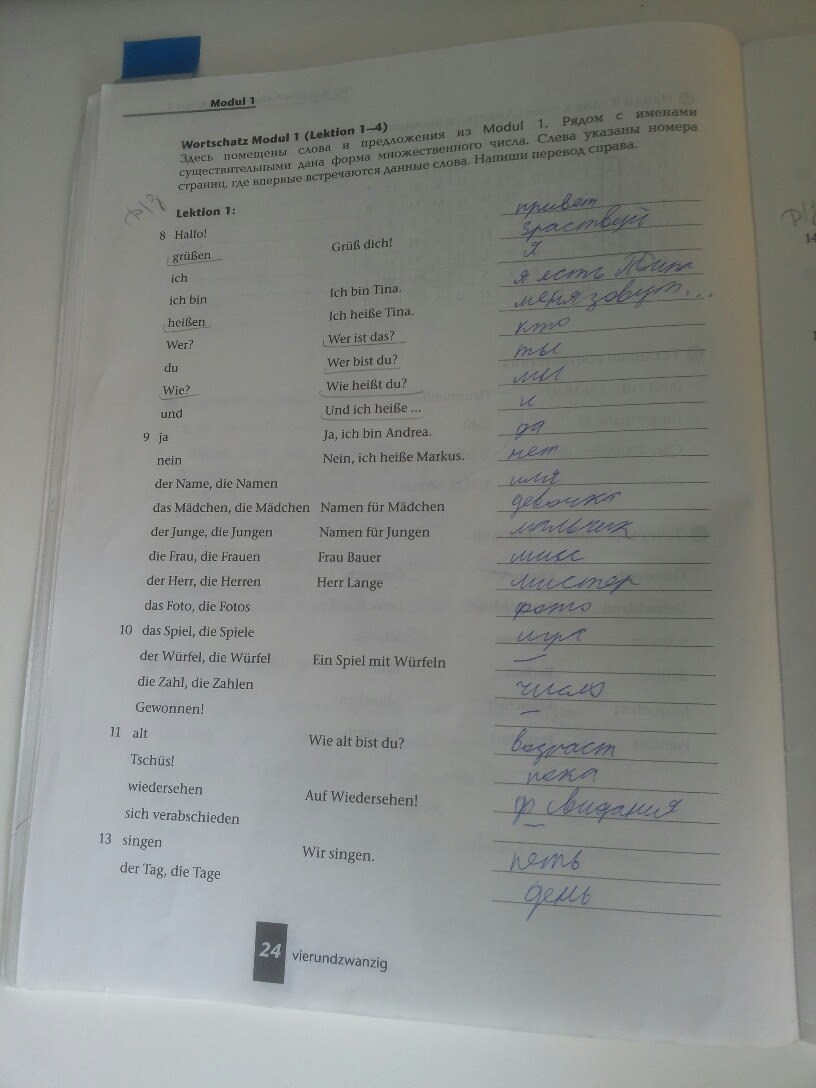 Modul 1
Wortschatz Modul 1 (Lektion 1–4)
Здесь помещены слова и предложения из Modul 1. Рядом с именами
существительными дана форма множественного числа. Слева указаны номера
страниц, где впервые встречаются данные слова. Напиши перевод справа.
Lektion 1:
8 Hallo! привет
grüßen Grüß dich! зраствуй
ich я
ich bin Ich bin Tina. я есть Тина
heißen Ich heiße Tina. меня зовут...
Wer? Wer ist das? кто
du Wer bist du? ты
Wie? Wie heißt du? мы
und Und ich heiße ... и
9 ja Ja, ich bin Andrea. да
nein Nein, ich heiße Markus. нет
der Name, die Namen имя
das Mädchen, die Mädchen Namen für Mädchen девочка
der Junge, die Jungen Namen für Jungen мальчик
die Frau, die Frauen Frau Bauer мисс
der Herr, die Herren Herr Lange мистер
das Foto, die Fotos фото
10 das Spiel, die Spiele игра
der Würfel, die Würfel Ein Spiel mit Würfeln —
die Zahl, die Zahlen число
Gewonnen! —
11 alt Wie alt bist du? возраст
Tschüs! пока
wiedersehen Auf Wiedersehen! свидания
sich verabschieden —
13 singen Wir singen. петь
der Tag, die Tage день
24 vierundzwanzig
14